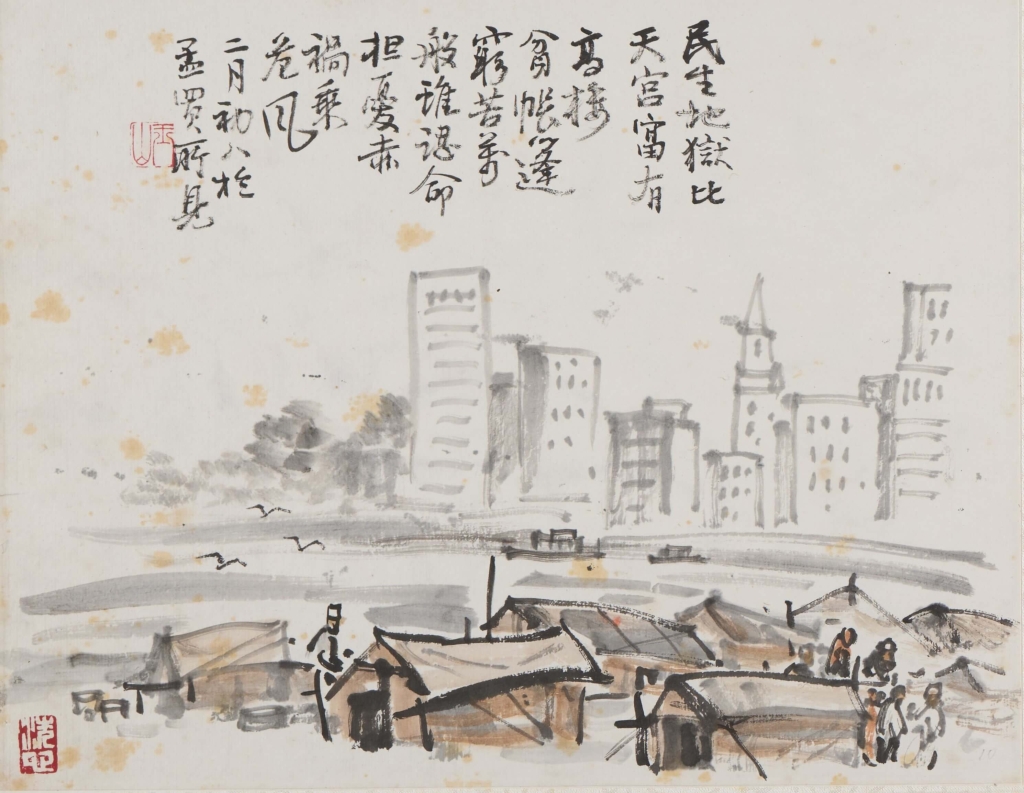 民生地獄比
天宮富有
高樓
貧帳篷
窮苦萬
般誰認命
担憂赤
禍乘
危风
二月初八於
孟買所見